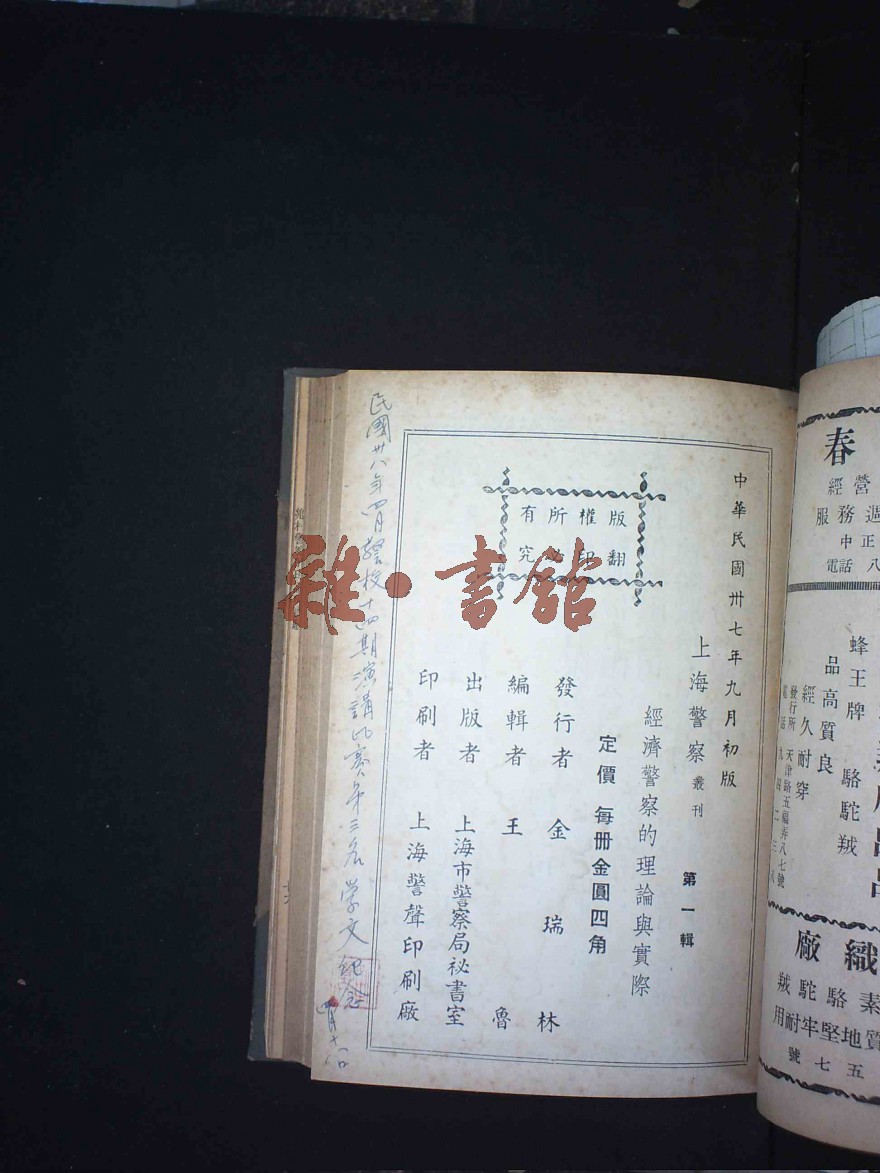 春
經營
服務週
中正
電話 八
蜂王牌 駱駝羢
品高質良
經久耐穿
發行所 天津路五福弄八七號
電話 九四二三八
織
廠
素駱駝羢
質地堅牢耐用
五七號
版權所有
翻印必究
中華民國卅七年九月初版
上海警察叢刊 第一輯
經濟警察的理論與實際
定價 每冊金圓四角
發行者 金瑞林
編輯者 王魯
出版者 上海市警察局祕書室
印刷者 上海警聲印刷廠
民國卅八年四月警校十四期演講比賽第三名 学文 紀念
四月十八日
雜·書館